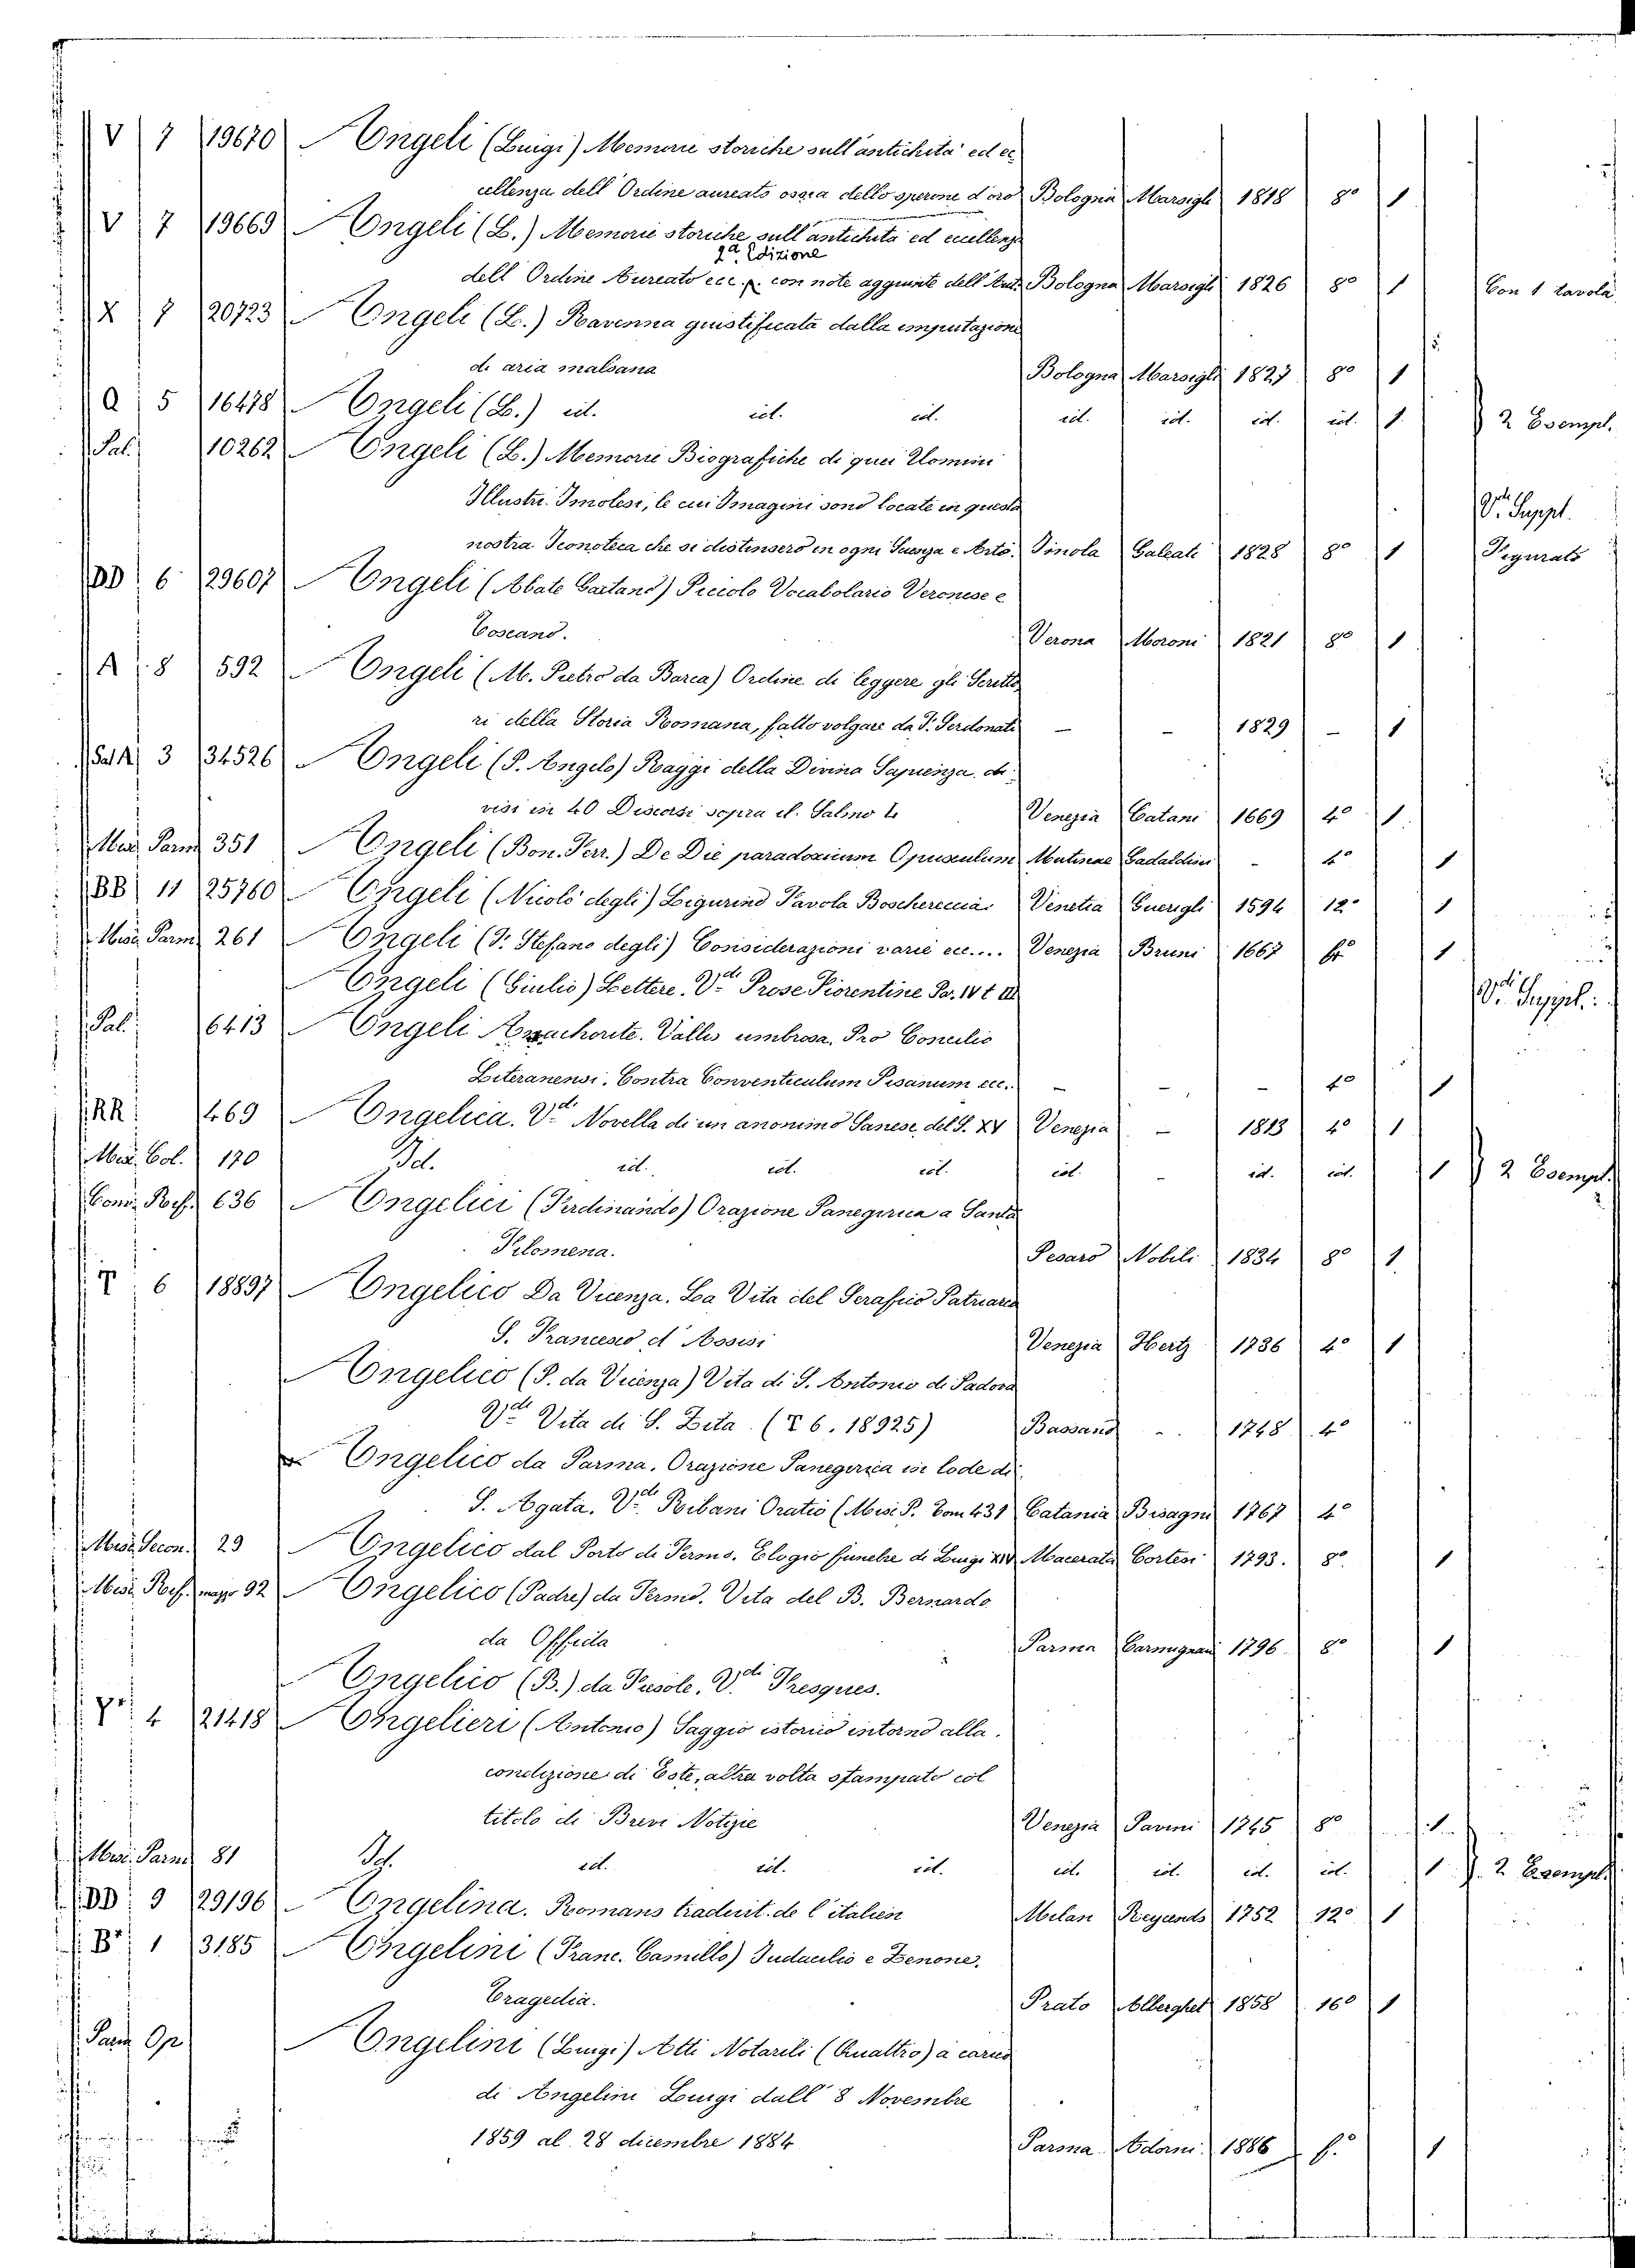 V 7 19670 Angeli (Luigi) Memorie storiche sull'antichita' ed ec
cellenza dell' Ordine aureato ossia dello sperone d'oro Bologna Marsigli 1818 8° 1
V 7 19669 Angeli (L.) Memorie storiche sull'antichita ed eccellenza
2.ª Edizione
dell Ordine Aureato ecc. con note aggiunte dell'Aut. Bologna Marsigli 1826 8° 1 Con 1 tavola
X 7 20723 Angeli (L.) Ravenna giustificata dalla imputazione
di aria malsana Bologna Marsigli 1827 8° 1
Q 5 16478 Angeli (L.) id. id. id. id. id. id. id. 1. } 2 Esempl.
Pal. 10262 Angeli (L.) Memorie Biografiche di quei Uomini
Illustri Imolesi, le cui Imagini sono locate in questa V.di Suppl.
nostra Iconoteca che si distinsero in ogni Scienza e Arte. Imola Galeati 1828 8° 1 Figurato
DD 6 29607 Angeli (Abate Gaetano) Piccolo Vocabolario Veronese e
Toscano. Verona Moroni 1821 8° 1
A 8 592 Angeli (M. Pietro da Barca) Ordine di leggere gli Scritto
ri della Storia Romana, fatto volgare da F. Serdonati — - 1829 - 1
Sal A 3 34526 Angeli (P. Angelo) Raggi della Divina Sapienza di
visi in 40 Discorsi sopra il Salmo L Venezia Catani 1669 4° 1
Misc. Parm 351 Angeli (Bon. Ferr.) De Die paradoxicum Opusculum Mutinae Gadaldini - 4° 1
BB 11 25760 Angeli (Nicolò degli) Ligurino Favola Boschereccia Venetia Guerigli 1594 12° 1
Misc. Parm. 261 Angeli (P. Stefano degli) Considerazioni varie ecc.... Venezia Bruni 1667 4° 1
Angeli (Giulio) Lettere. V.di Prose Fiorentine Par. IV t III V.di Suppl.
Pal. 6413 Angeli Anachorite. Vallis umbrosa. Pro Concilio
Lateranensi. Contra Conventiculum Pisanum ecc. - - - 4° 1
RR 469 Angelica. V.di Novella di un anonimo Sanese, del S. XV Venezia - 1813 4° 1
Misc. Col. 170 Id. id. id. id. id. - id. id. 1 } 2 Esempl.
Conv. Rof. 636 Angelici (Ferdinando) Orazione Panegirica a Santa
Filomena. Pesaro Nobili 1834 8° 1.
T 6 18897 Angelico Da Vicenza. La Vita del Serafico Patriarca
S. Francesco d'Assisi Venezia Hertz 1736 4° 1
Angelico (P. da Vicenza) Vita di S. Antonio di Padova
V.di Vita di S. Zita. (T 6. 18925) Bassano - 1748 4°
Angelico da Parma. Orazione Panegirica in lode di
S. Agata. V.di Balbani Oratio (Misc. P. Tom 431 Catania Bisagni 1767 4°
Misc. Secon. 29 Angelico dal Porto di Fermo. Elogio funebre di Luigi XVI Macerata Cortesi 1793. 8°. 1
Misc. Rof. mago 92 Angelico (Padre) da Fermo. Vita del B. Bernardo
da Offida Parma Carmignani 1796 8° 1
Angelico (B.) da Fiesole. V.di Fresques.
4 21418 Angelieri (Antonio) Saggio istorico intorno alla
condizione di Este, altra volta stampato col
titolo di Brevi Notizie Venezia Pavini 1745 8° 1
Misc. Parm 81 Id. id. id. id. id. id. id. id. 1 } 2 Esempl.
DD 9 29196 Angelina. Romans traduit. de l'italien Milan Reycends 1752 12° 1
1 3185 Angelini (Franc. Camillo) Induzilio e Zenone.
Tragedia. Prato Alberghet 1858 16° 1
Parm Op Angelini (Luigi) Atti Notarili (Quattro) a carico
di Angelini Luigi dall' 8 Novembre
1859 al 28 dicembre 1884 Parma Adorni 1886 f.° 1